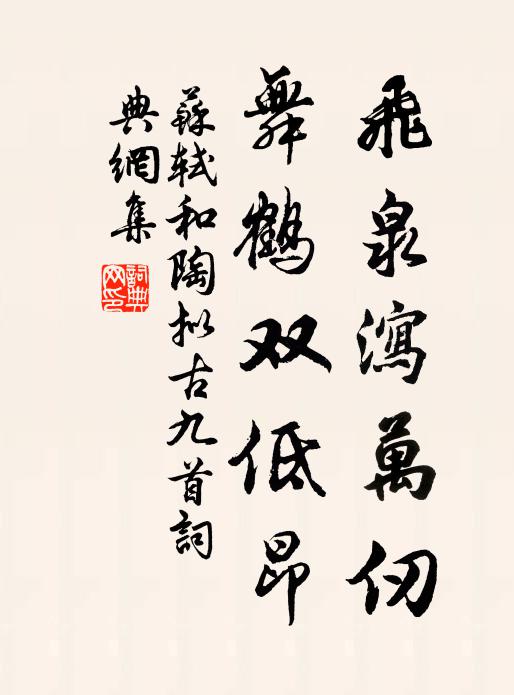 飛泉瀉萬仞
舞鶴双低昂
蘇軾和陶拟古九首詞
典網集
詞典
网印